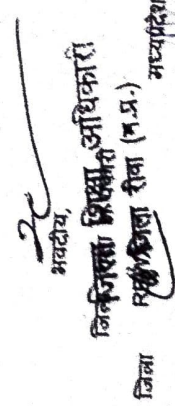 भवदीय,
जिला शिक्षा अधिकारी
जिला रीवा (म.प्र.)
जिला मध्यप्रदेश